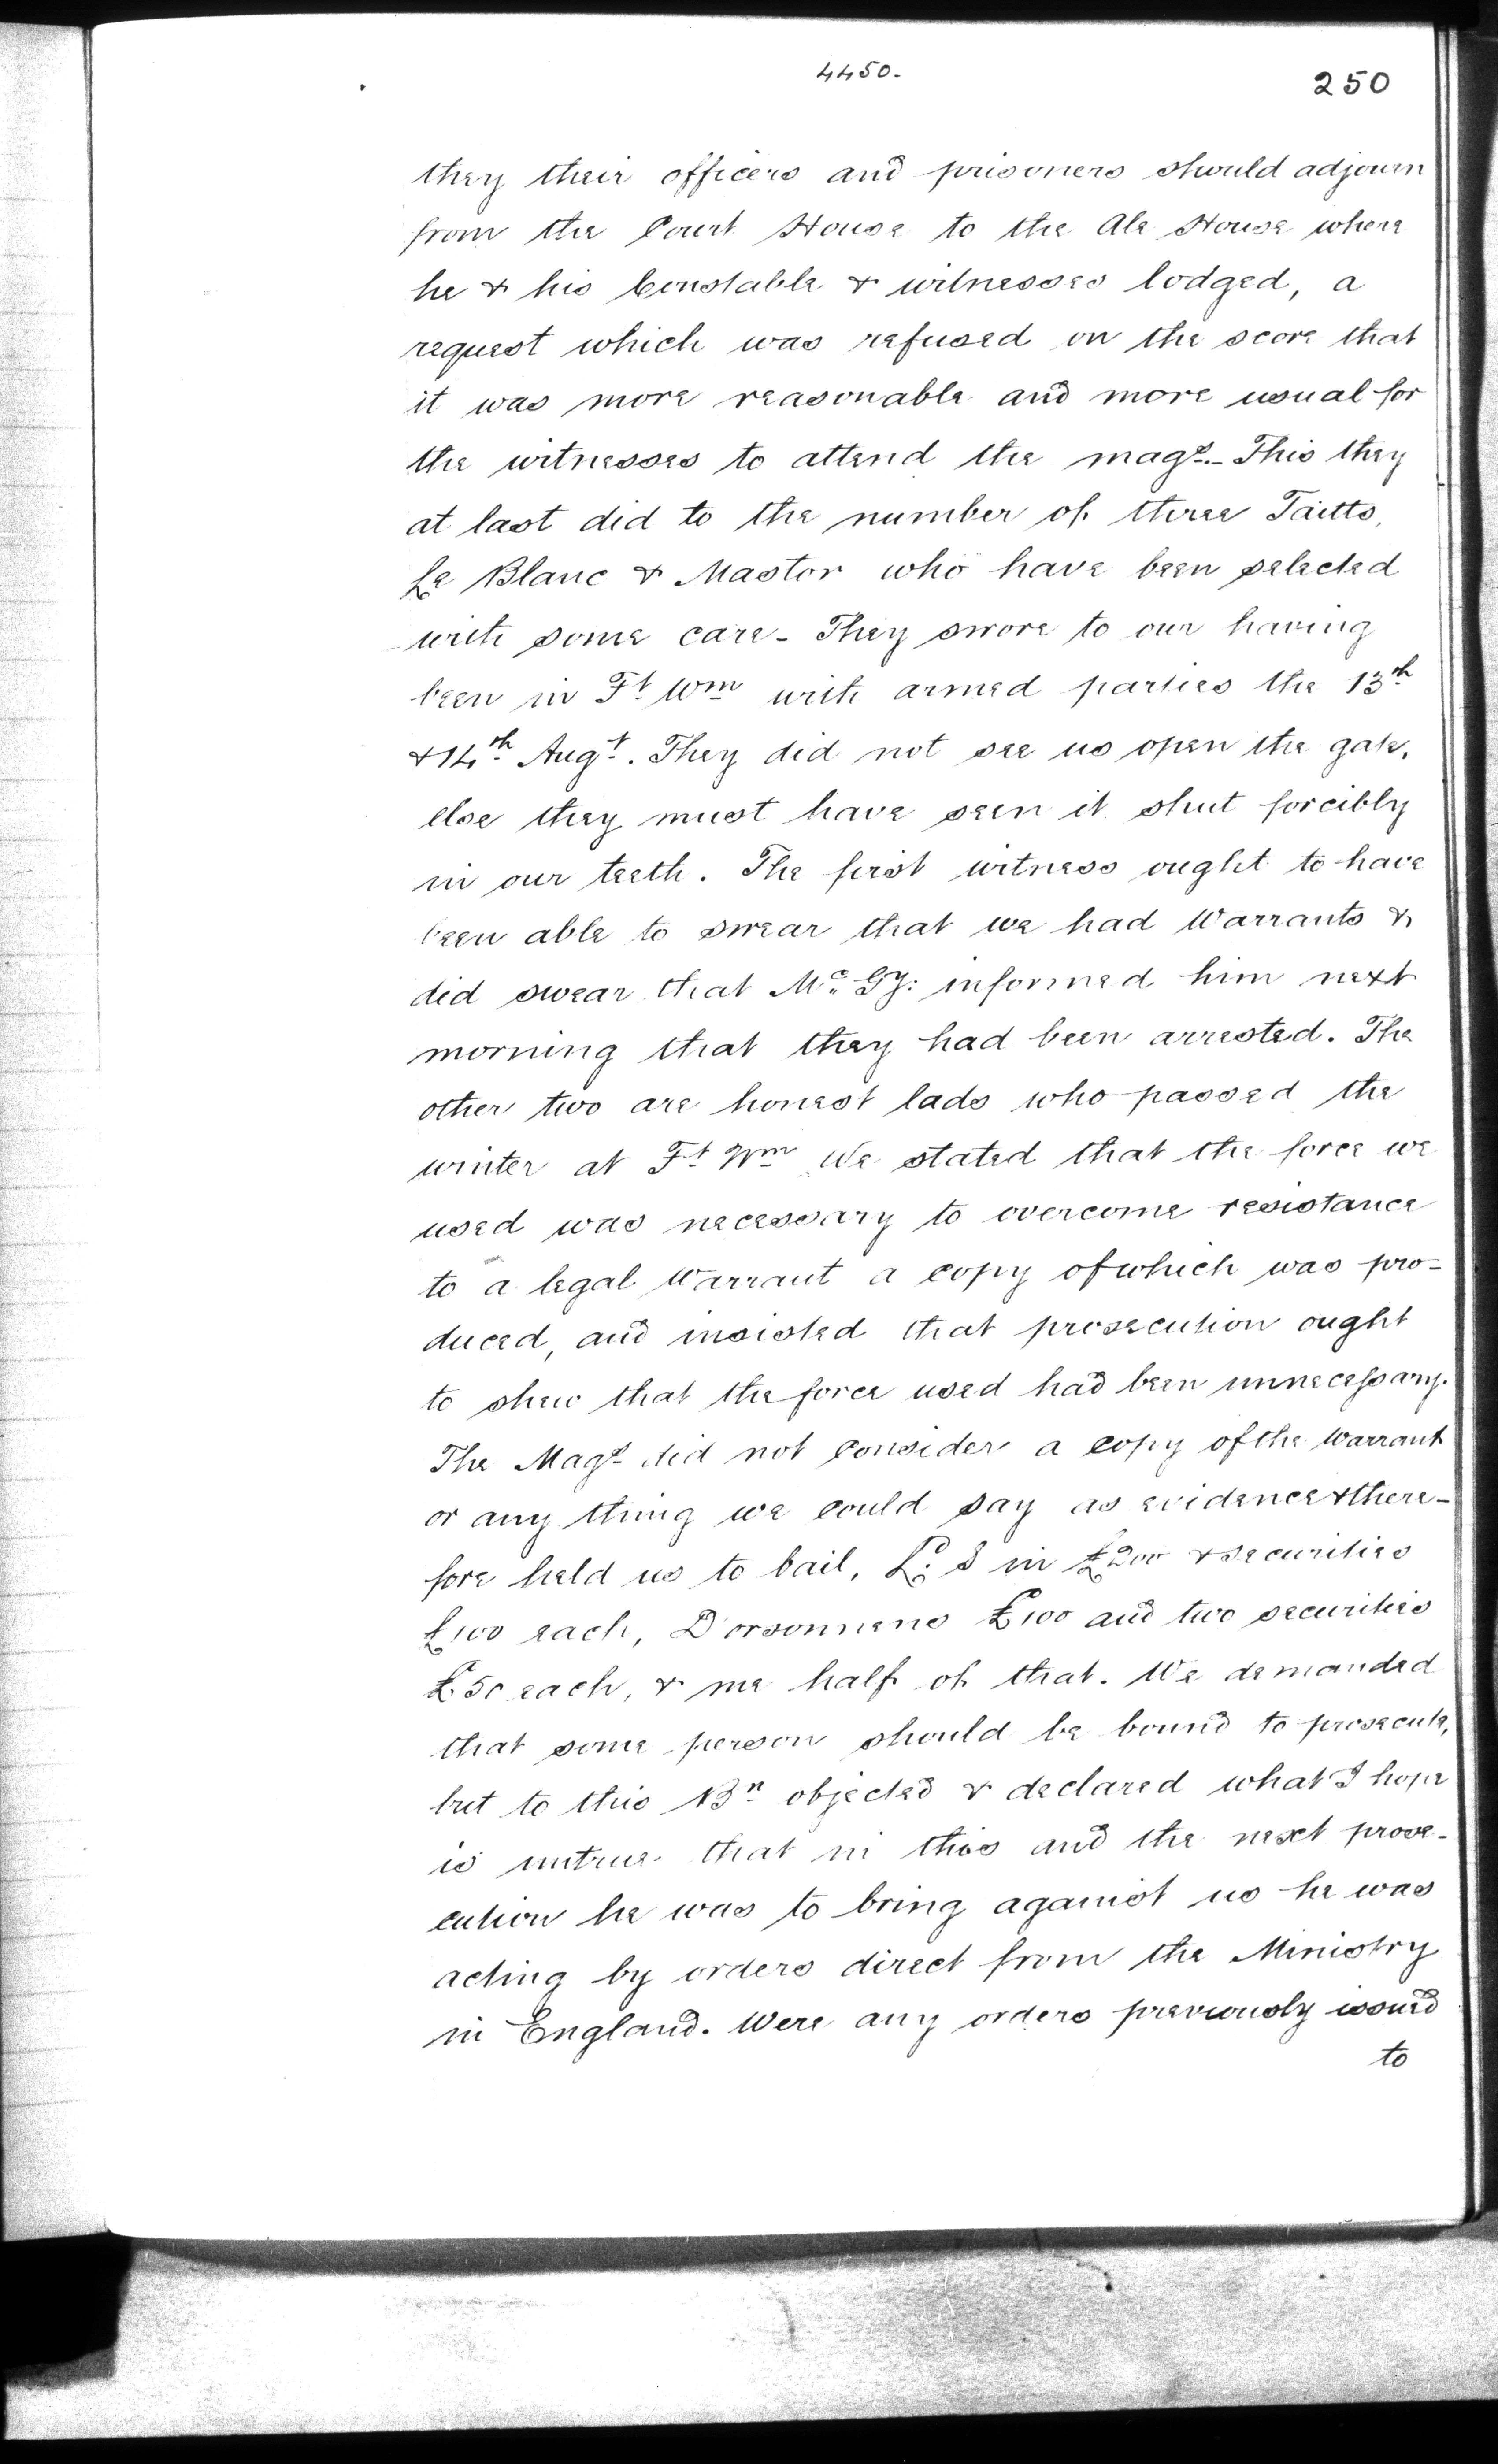 4450.
250
they their officers and prisoners should adjourn
from the Court House to the Ale House where
he & his Constable & witnesses lodged, a
request which was refused on the score that
it was more reasonable and more usual for
the witnesses to attend the mags.- This they
at last did to the number of three Taitts,
Le Blanc & Mastor who have been selected
with some care - They swore to our having
been in Ft Wm with armed parties the 13th
& 14th Augt. They did not see us open the gate,
else they must have seen it shut forcibly
in our teeth. The first witness ought to have
been able to swear that we had Warrants &
did swear that Mc Gy: informed him next
morning that they had been arrested. The
other two are honest lads who passed the
winter at Ft Wm We stated that the force we
used was necessary to overcome resistance
to a legal Warrant a copy of which was pro-
duced, and insisted that prosecution ought
to shew that the force used had been unnecessary.
The Mags did not consider a copy of the Warrant
or any thing we could say as evidence & there-
fore held us to bail, Ld: S in £200 & securities
£100 each, D'orsonnens £100 and two securities
£50 each, & me half of that. We demanded
that some person should be bound to prosecute,
but to this Bn objected & declared what I hope
is untrue that in this and the next prose-
cution he was to bring against us he was
acting by orders direct from the Ministry
in England. Were any orders previously issued
to